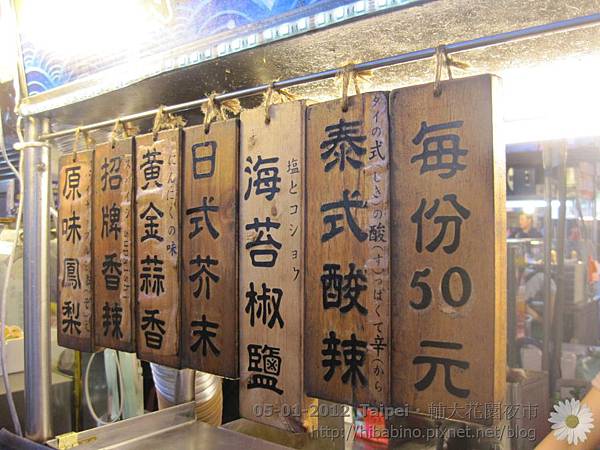 每份50元
泰式酸辣
タイの式(しき)の酸(す)っぱくて辛(から
海苔椒鹽
塩とコショウ
日式芥末
黃金蒜香
にんにくの味
招牌香辣
原味鳳梨
05-01-2012 Taipei・輔大花園夜市
http://hibabino.pixnet.net/blog